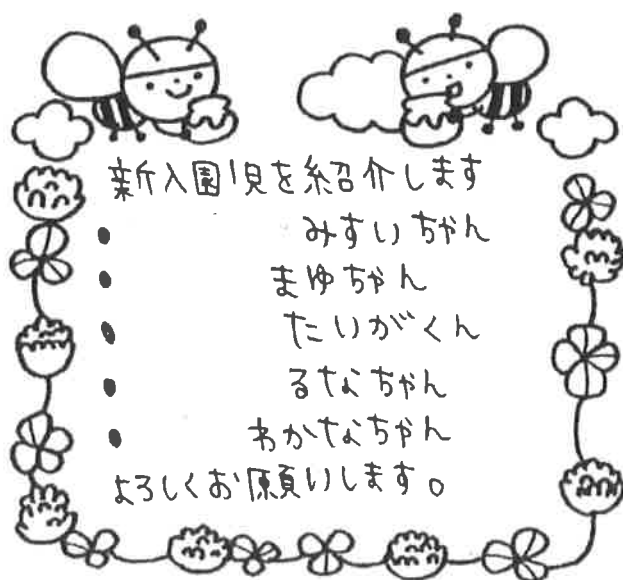 新入園児を紹介します
• みすいちゃん
• まゆちゃん
• たいがくん
• るなちゃん
• わかなちゃん
よろしくお願いします。